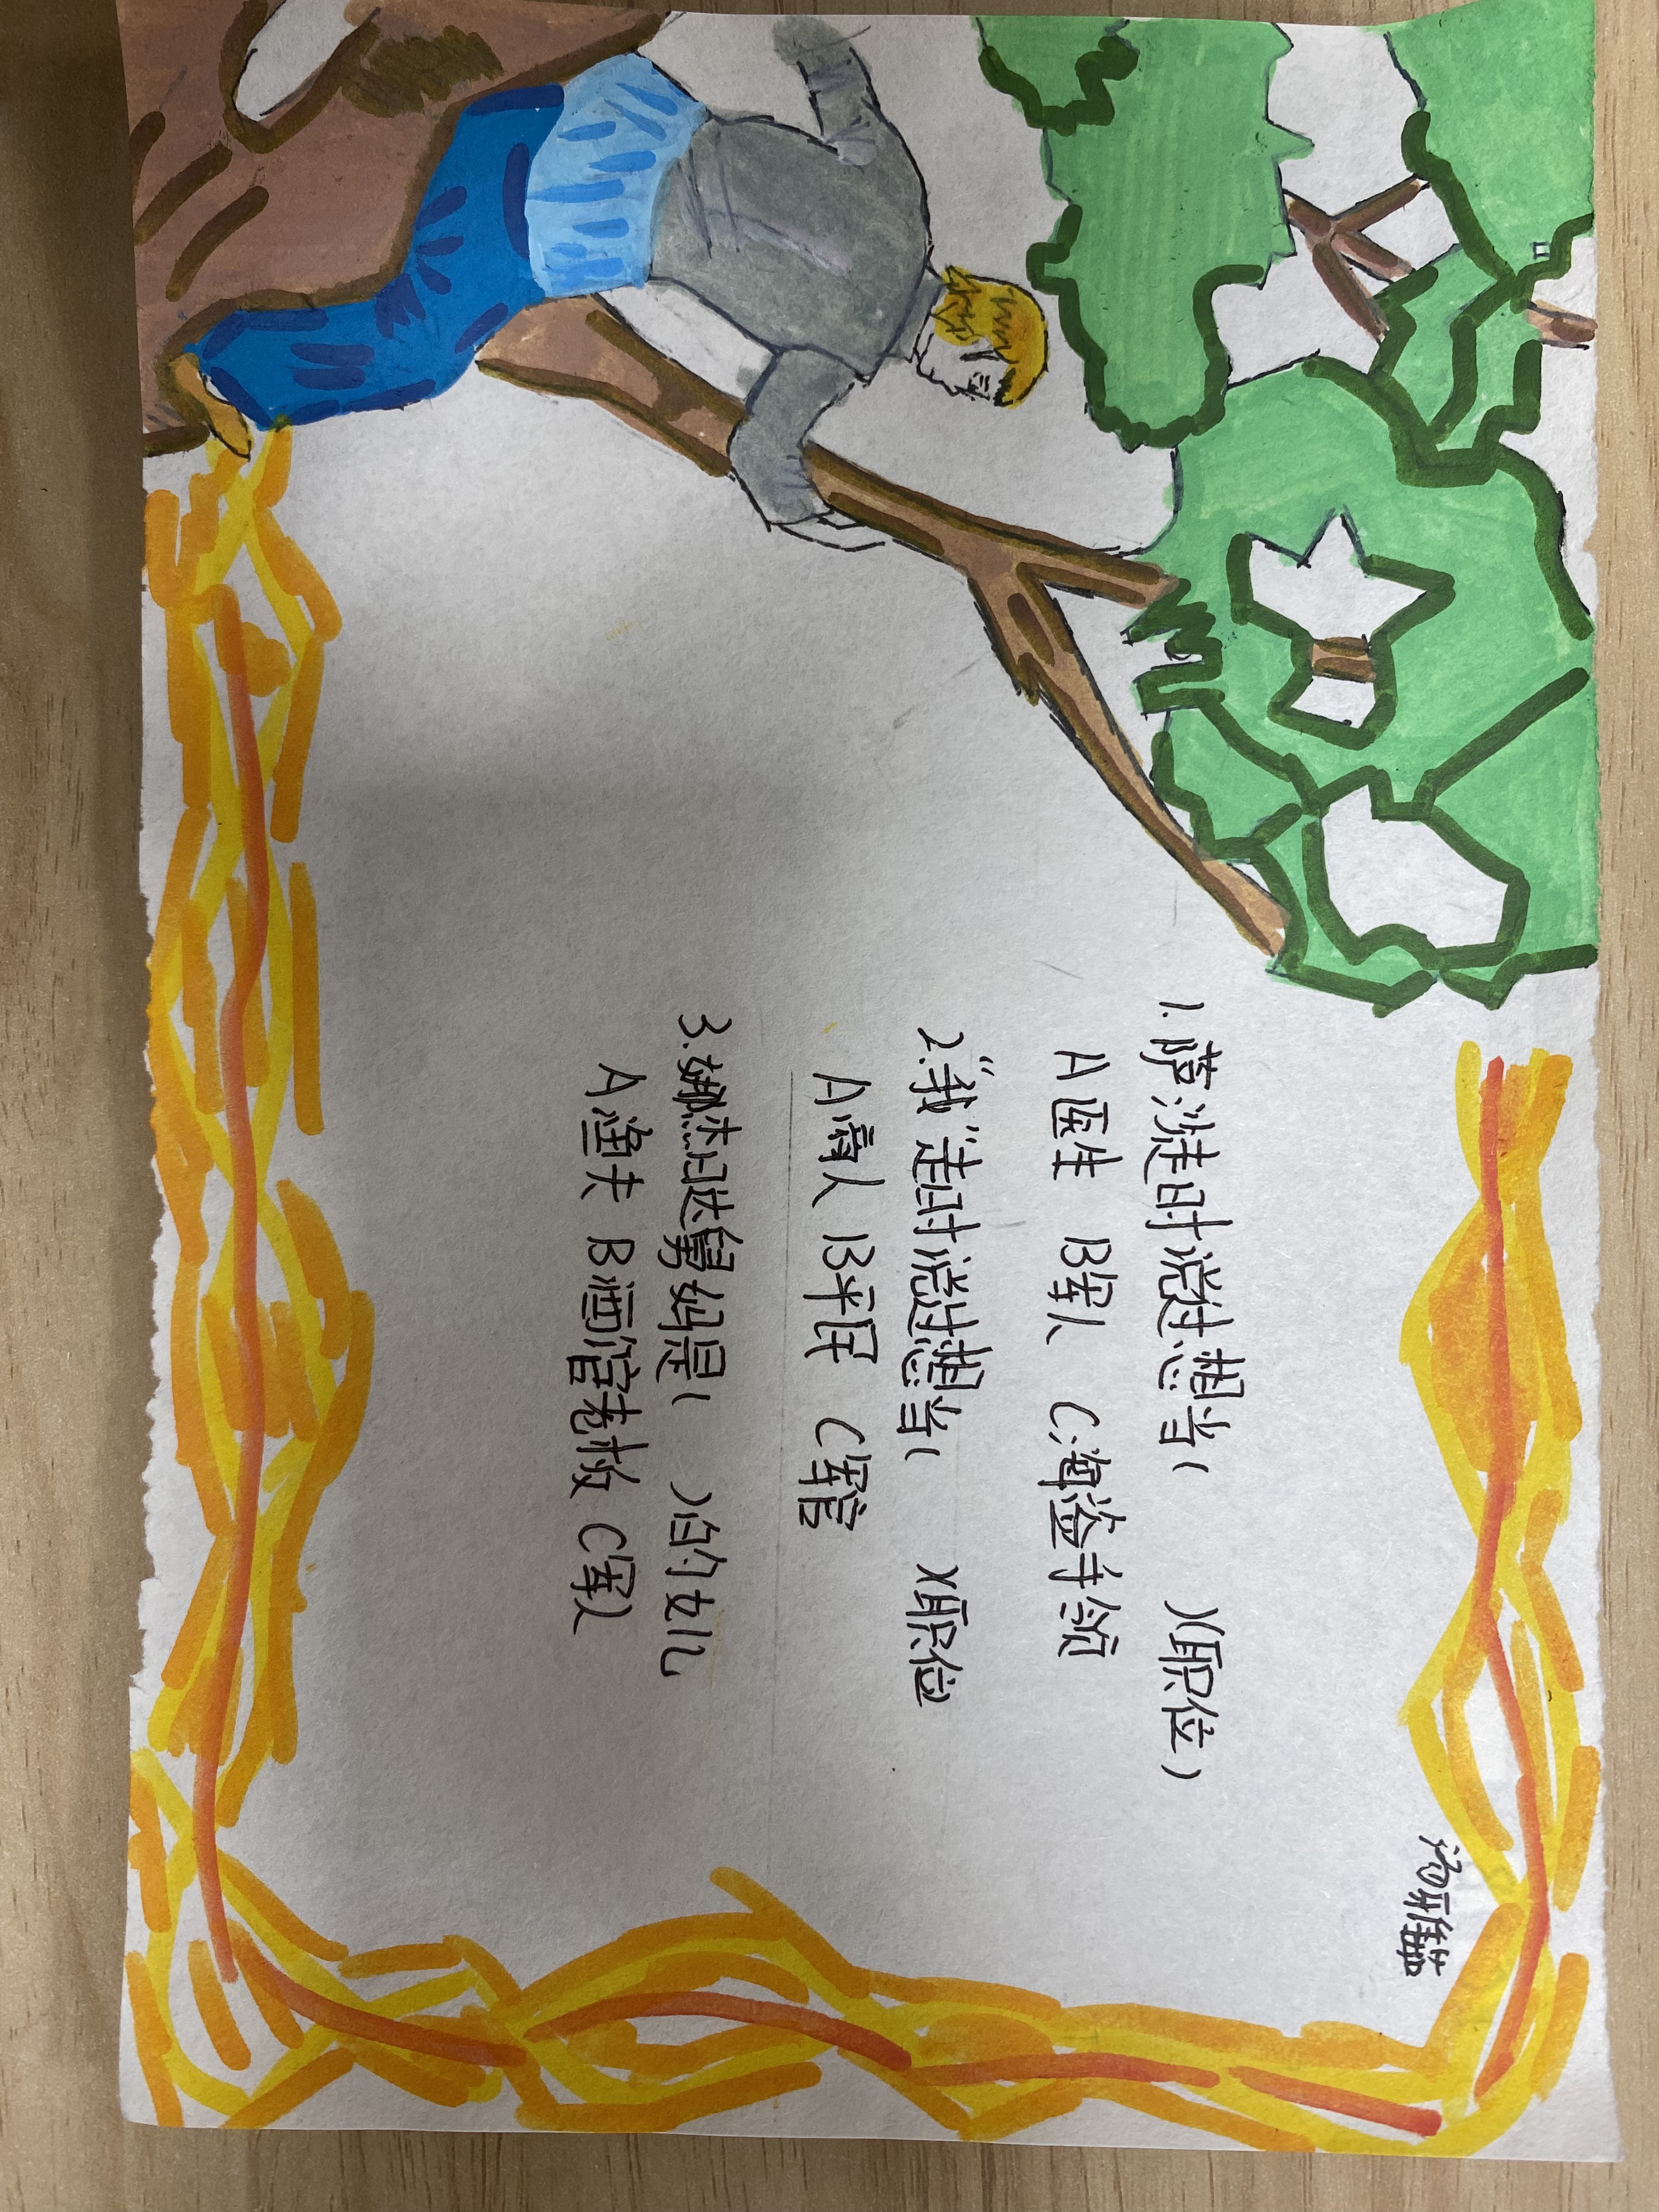 1.萨沙走时说过想当( )(职位)
A医生 B军人 C海盗手领
2."我"走时说过想当( )(职位
A商人 B平民 C军官
3.娜杰日达舅妈是( )的女儿
A渔夫 B酒馆老板 C军人